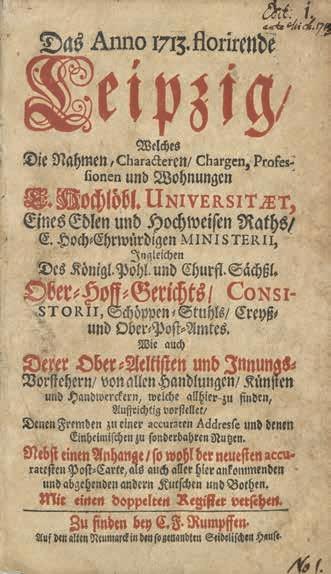 Edit: 1.
Das Anno 1713. florirende
Leipzig/
Welches
Die Nahmen/ Characteren/ Chargen, Profes-
sionen und Wohnungen
E. Hochlöbl. UNIVERSITÆT,
Eines Edlen und Hochweisen Raths/
E. Hoch-Ehrwürdigen MINISTERII,
Ingleichen
Des Königl. Pohl. und Churfl. Sächßl.
Ober-Hoff-Gerichts/ CONSI-
STORII, Schöppen-Stuhls/ Creyß-
und Ober-Post-Amtes.
Wie auch
Derer Ober-Aeltisten und Innungs-
Vorstehern/ von allen Handlungen/ Künsten
und Handwerckern, welche allhier zu finden,
Auffrichtig vorstellet/
Denen Fremden zu einer accuraten Addresse und denen
Einheimischen zu sonderbahren Nutzen.
Nebst einen Anhange/ so wohl der neuesten accu-
ratesten Post-Carte, als auch aller hier ankommenden
und abgehenden andern Kutschen und Bothen.
Mit einen doppelten Register versehen.
Zu finden bey C. F. Rumpffen.
Auf den alten Neumarck in den so genandten Seidelischen Hause.
No 1.